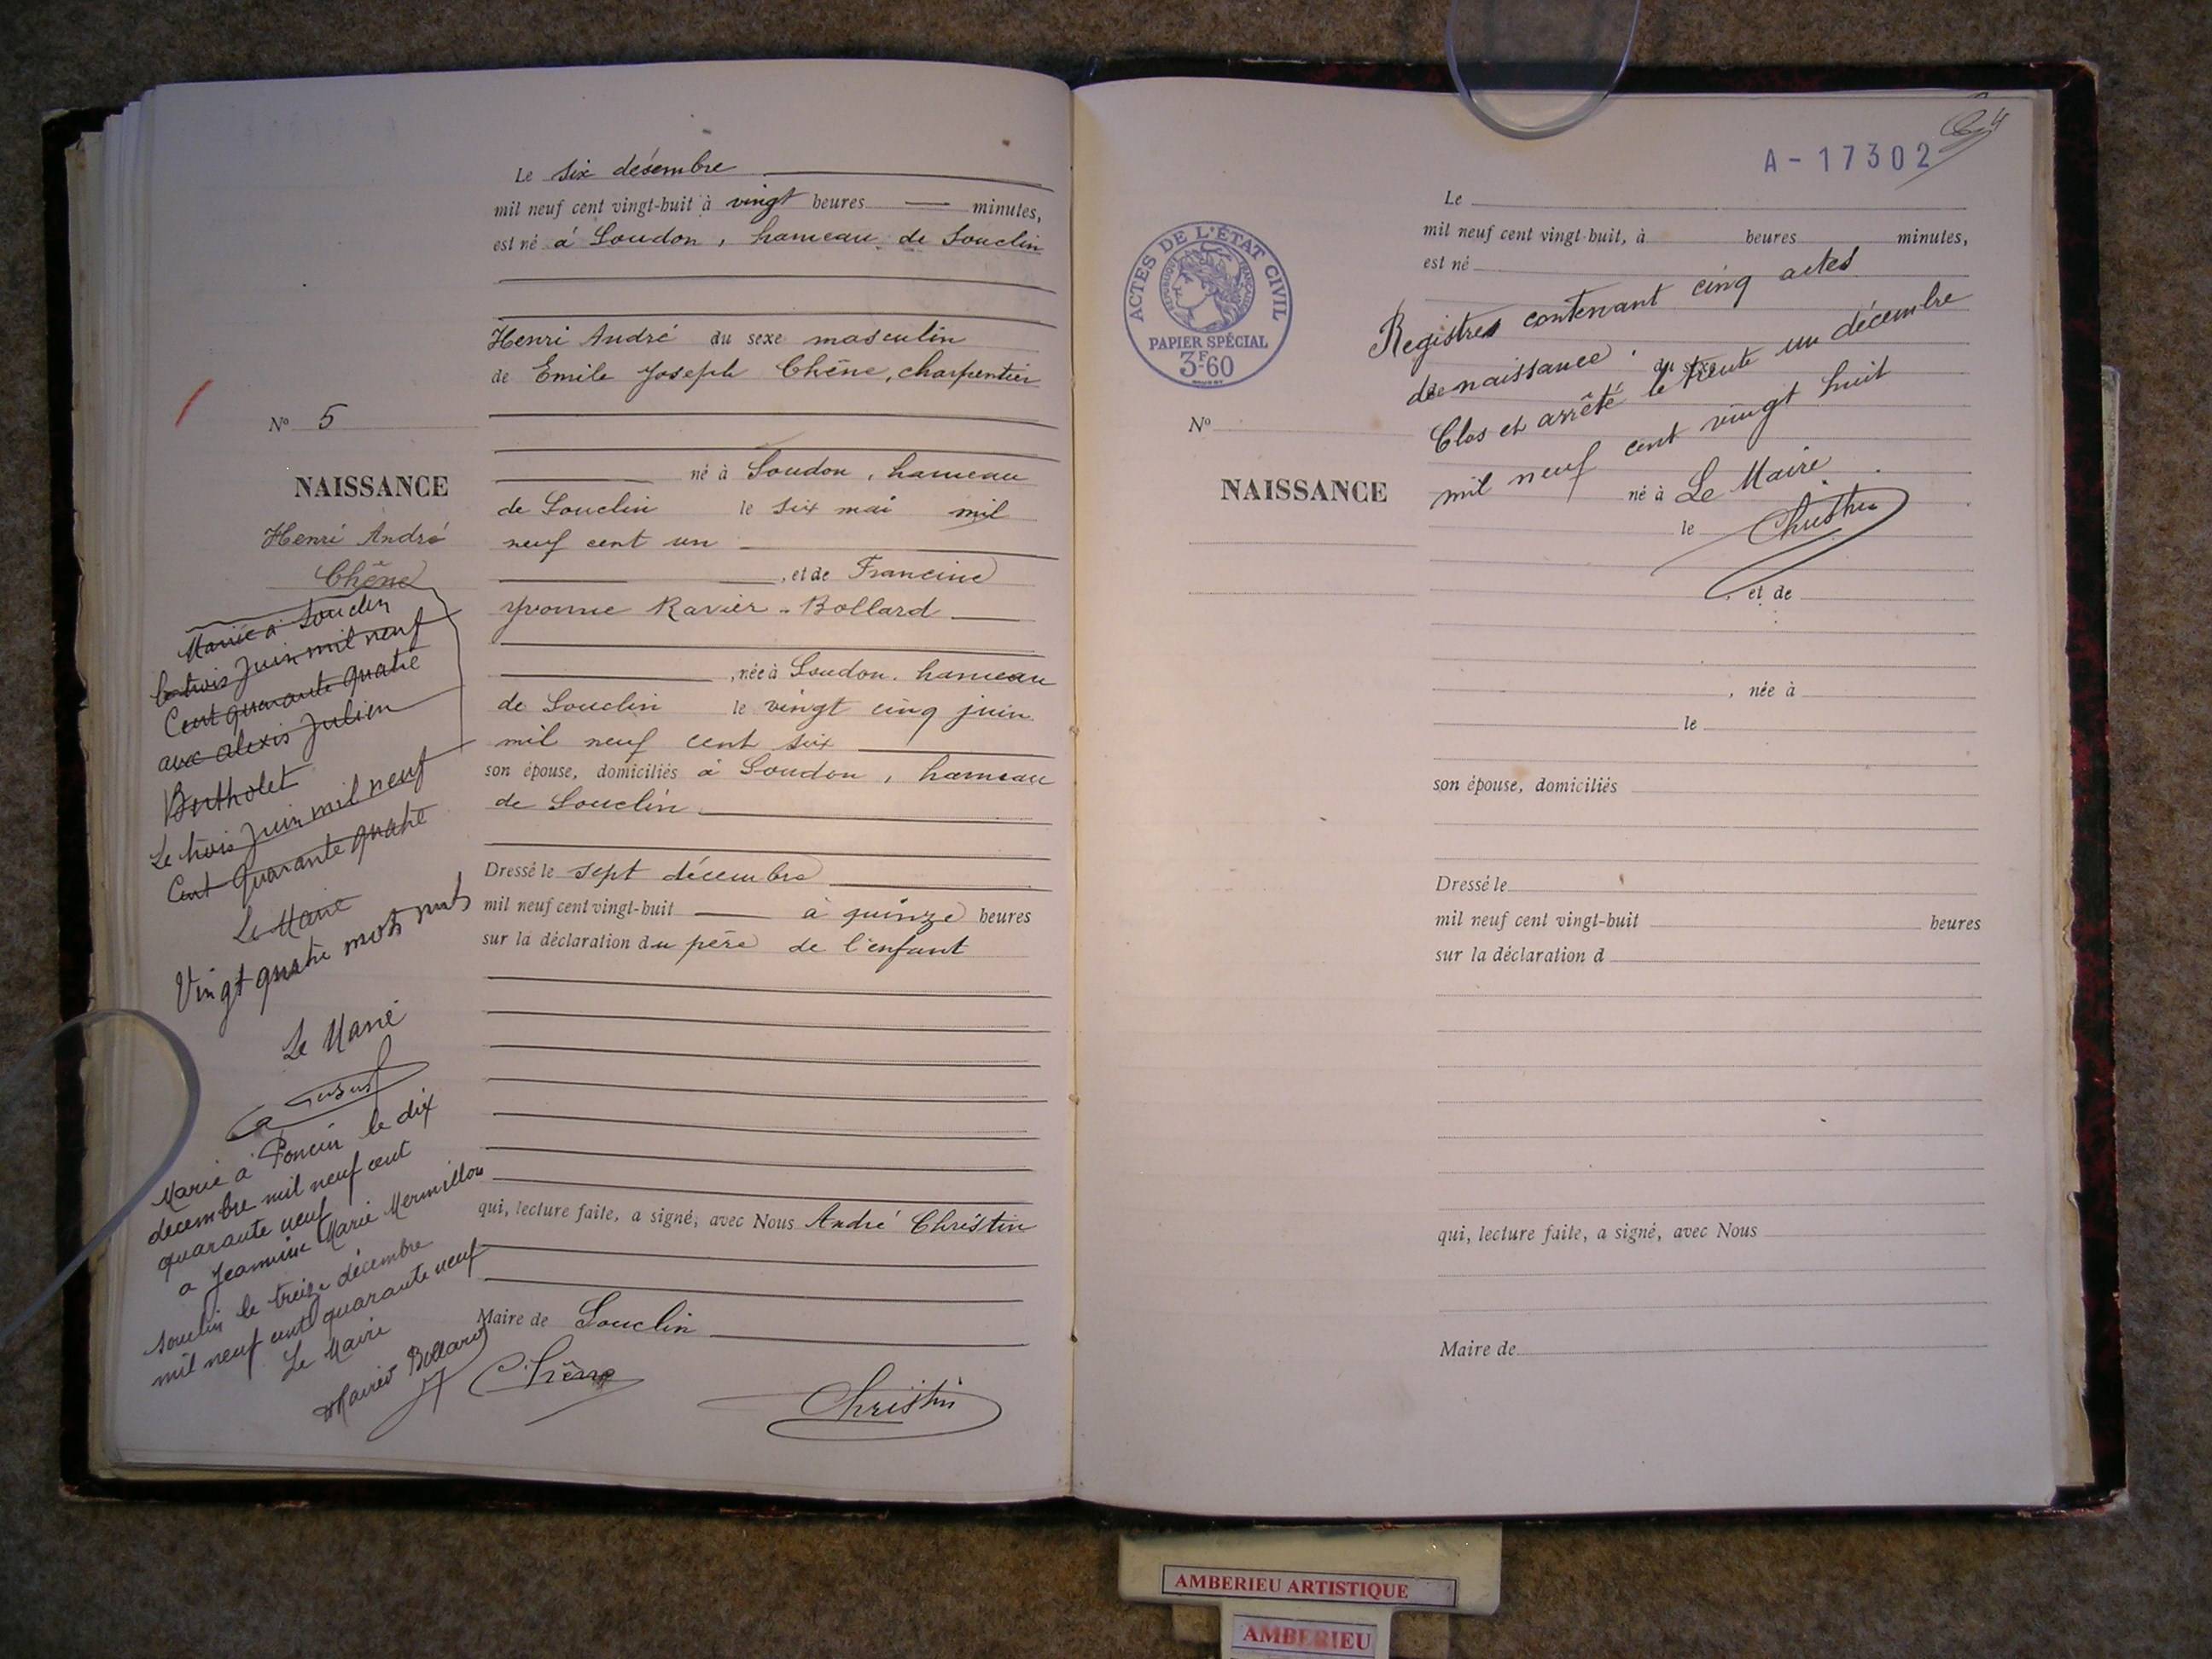 Le six désembre
mil neuf cent vingt-huit à vingt heures — minutes,
est né à Soudon, hameau de Souclin
Henri André du sexe masculin
de Emile Joseph Chêne, charpentier
né à Soudon, hameau
de Souclin le six mai mil
neuf cent un
, et de Francine
Yvonne Ravier-Bollard
, née à Soudon, hameau
de Souclin le vingt cinq juin
mil neuf cent six
son épouse, domiciliés à Soudon, hameau
de Souclin
Dressé le sept décembre
mil neuf cent vingt-huit — à quinze heures
sur la déclaration du père de l'enfant
qui, lecture faite, a signé, avec Nous André Christin
Maire de Souclin
Chêne
Christin
No 5
NAISSANCE
Henri André
Chêne
Marié à Souclin
le trois Juin mil neuf
Cent quarante quatre
aux alexis Julien
Bertholet
Le trois Juin mil neuf
Cent quarante quatre
Le Maire
Vingt quatre mots nuls
Le Maire
Marié à Poncin le dix
decembre mil neuf cent
quarante neuf
a Jeannine Marie Mermillon
Souclin le treize décembre
mil neuf cent quarante neuf
Le Maire
Bollard
A-17302
Le
mil neuf cent vingt-huit, à heures minutes,
est né
Registres contenant cinq actes
de naissance. du sexe
Clos et arrêté le trente un décembre
mil neuf cent vingt huit
né à Le Maire
le Christin
, et de
, née à
le
son épouse, domiciliés
Dressé le
mil neuf cent vingt-huit heures
sur la déclaration d
qui, lecture faite, a signé, avec Nous
Maire de
ACTES DE L'ÉTAT CIVIL
RÉPUBLIQUE FRANÇAISE
PAPIER SPÉCIAL
3F60
No
NAISSANCE
AMBERIEU ARTISTIQUE
AMBERIEU